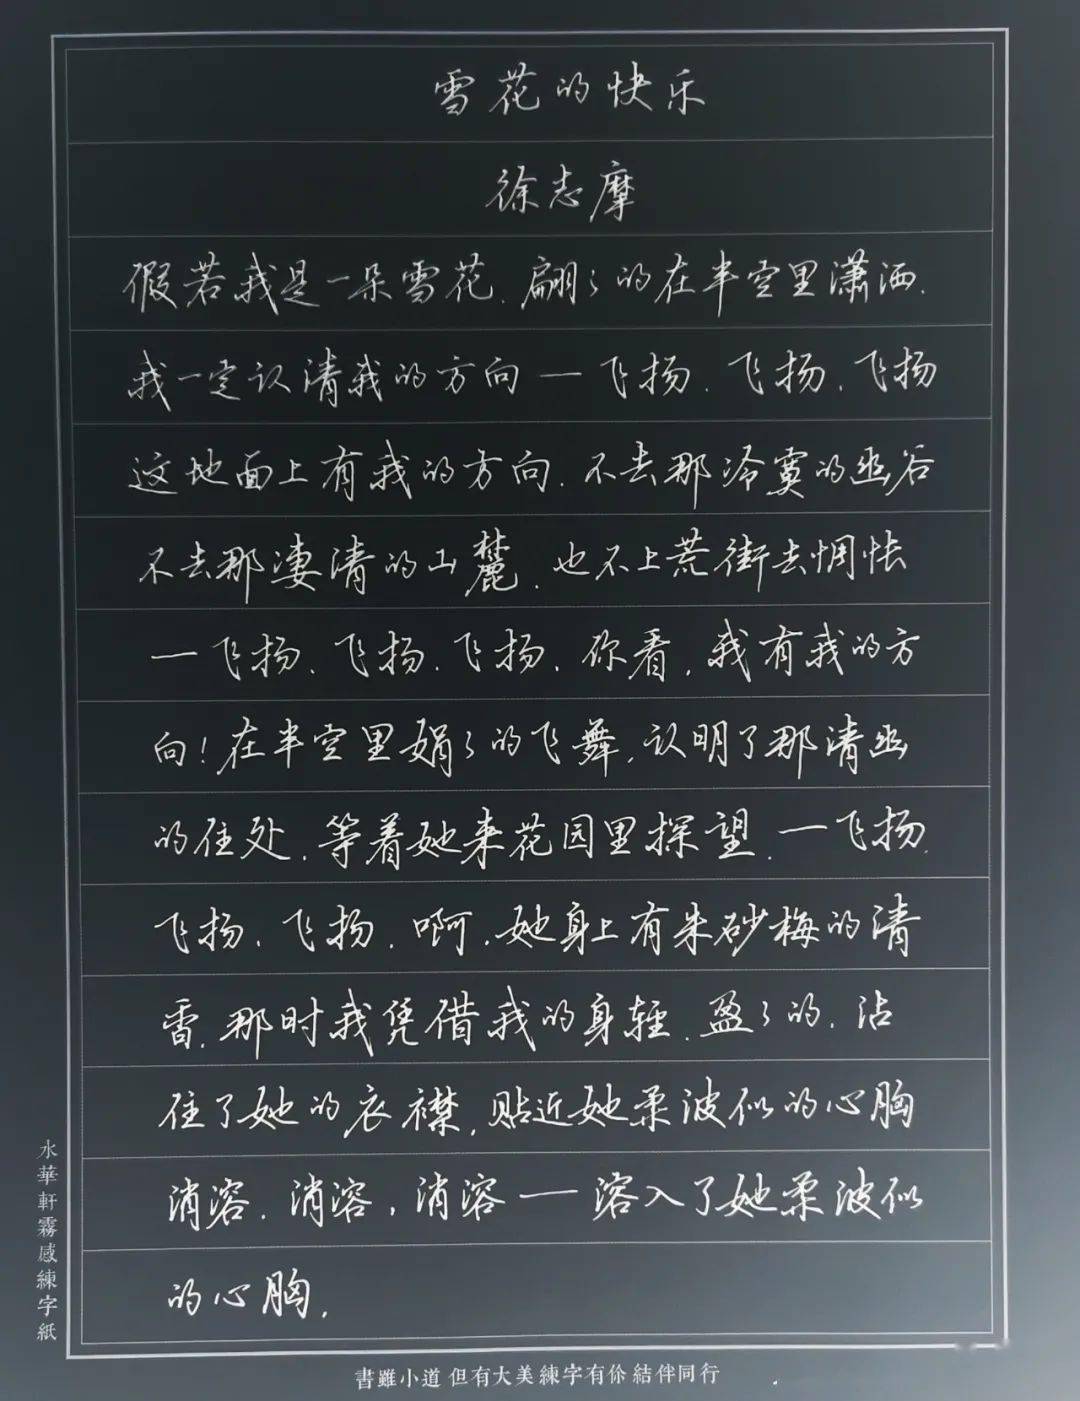 雪花的快乐
徐志摩
假若我是一朵雪花.翩々的在半空里潇洒.
我一定认清我的方向一飞扬.飞扬.飞扬
这地面上有我的方向.不去那冷寞的幽谷
不去那凄清的山麓.也不上荒街去惆怅
一飞扬.飞扬.飞扬.你看,我有我的方
向!在半空里娟々的飞舞,认明了那清幽
的住处.等着她来花园里探望.一飞扬.
飞扬.飞扬.啊.她身上有朱砂梅的清
香.那时我凭借我的身轻.盈々的.沾
住了她的衣襟,贴近她柔波似的心胸
消溶.消溶,消溶一溶入了她柔波似
的心胸.
水華軒霧感練字紙
書雖小道 但有大美 練字有你 結伴同行